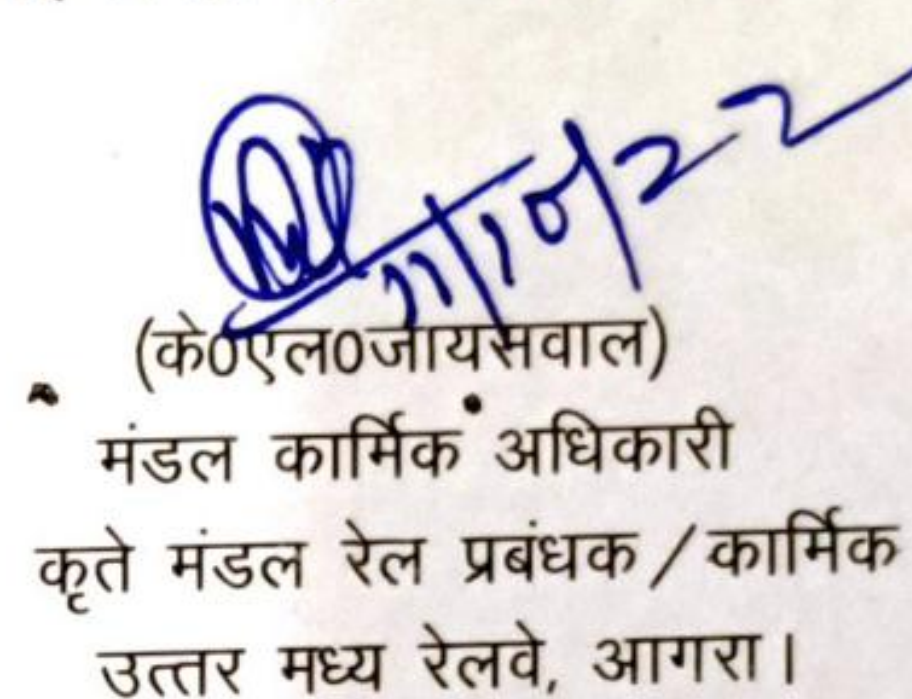 11/10/22
(के0एल0जायसवाल)
मंडल कार्मिक अधिकारी
कृते मंडल रेल प्रबंधक / कार्मिक
उत्तर मध्य रेलवे, आगरा।